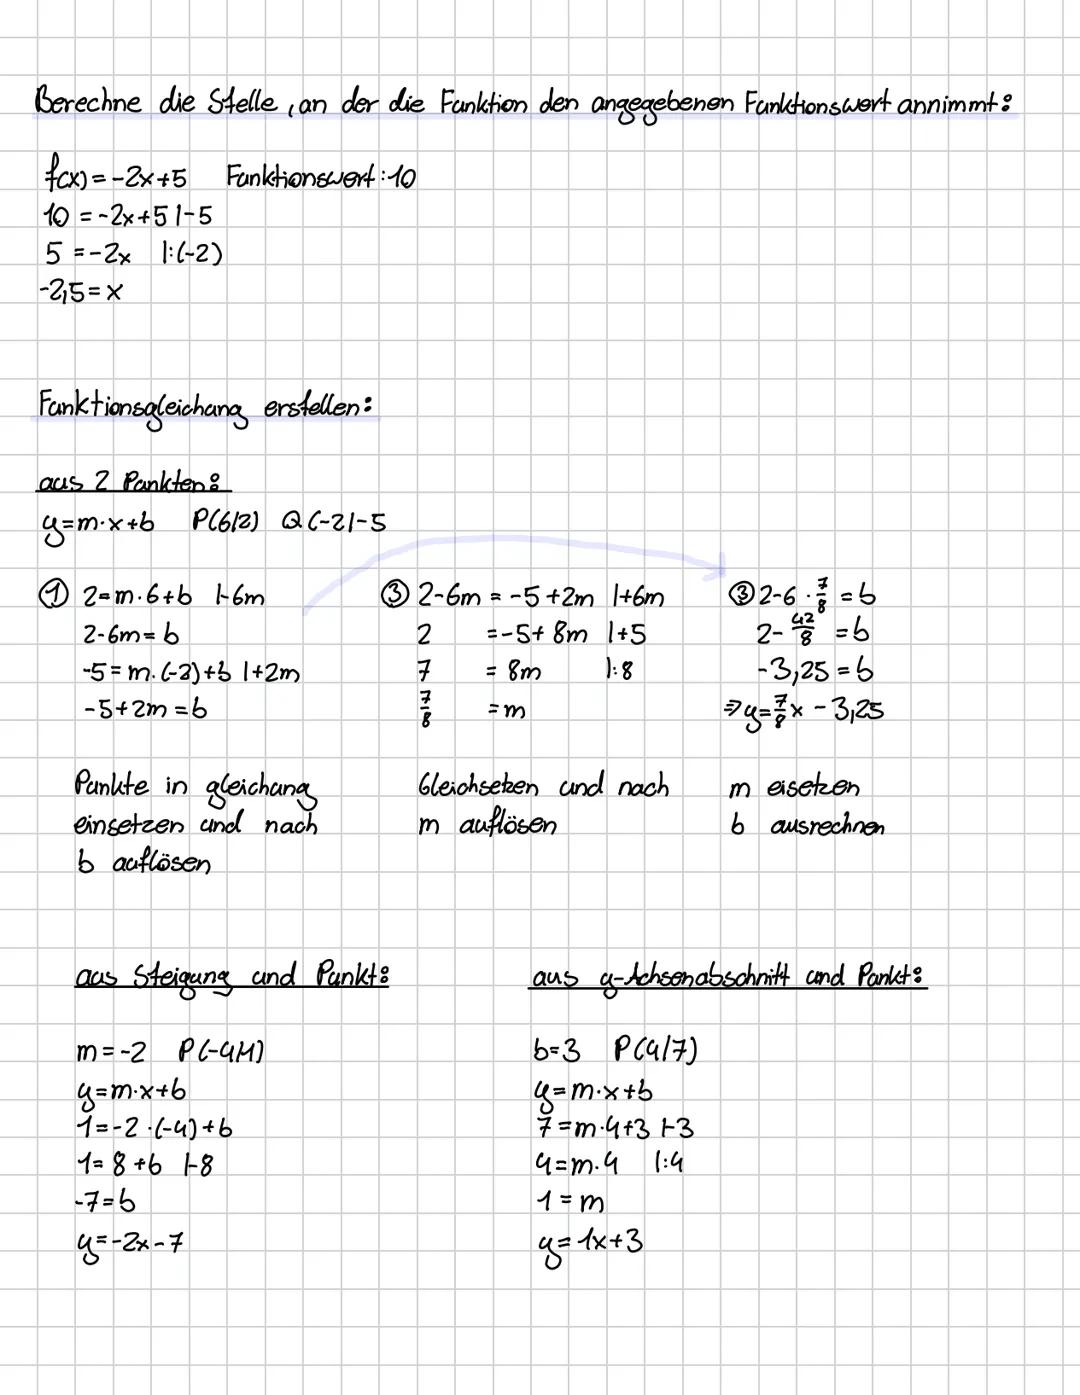 Berechne die Stelle, an der die Funktion den angegebenen Funktionswert annimmt:
f(x)=-2x+5 Funktionswert:10
10 =-2x+5 |-5
5 =-2x |:(-2)
-2,5=x
Funktionsgleichung erstellen:
aus 2 Punkten:
y=m·x+b P(6/2) Q(-2|-5
① 2=m·6+b |-6m
2-6m=b
-5=m·(-2)+b |+2m
-5+2m=b
Punkte in gleichung
einsetzen und nach
b auflösen
③ 2-6m = -5+2m |+6m
2 =-5+8m |+5
7 = 8m |:8
7/8 =m
Gleichsetzen und nach
m auflösen
③ 2-6·7/8 =b
2-42/8 =b
-3,25=b
⇒y=7/8x-3,25
m eisetzen
b ausrechnen
aus Steigung und Punkt:
m=-2 P(-4|1)
y=m·x+b
1=-2·(-4)+b
1=8+b |-8
-7=b
y=-2x-7
aus y-Achsenabschnitt und Punkt:
b=3 P(4/7)
y=m·x+b
7=m·4+3 |-3
4=m·4 |:4
1=m
y=1x+3